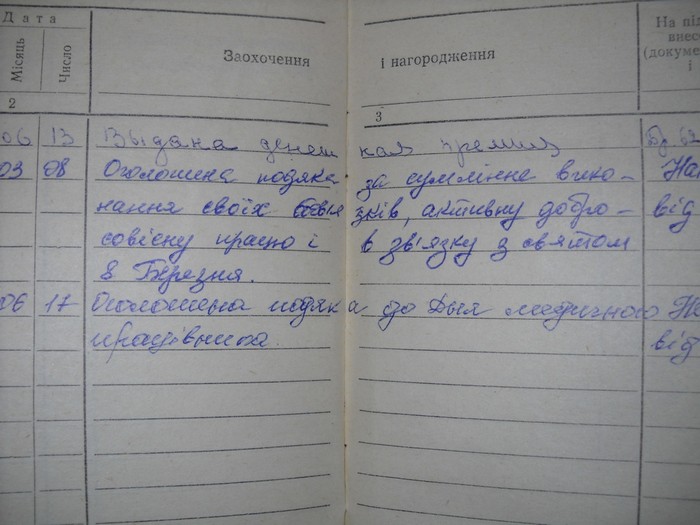 Дата
На під
внесе
Місяць
Число
Заохочення і нагородження
(докуме
і
2 3
06 13 Выдана денежная премия
03 08 Оголошена подяка за сумлінне вико- На
нання своїх обов'язків, активну добро- від
совісну працю і в зв'язку з святом
8 Березня.
06 17 Оголошена подяка до Дня медичного На
працівника. від